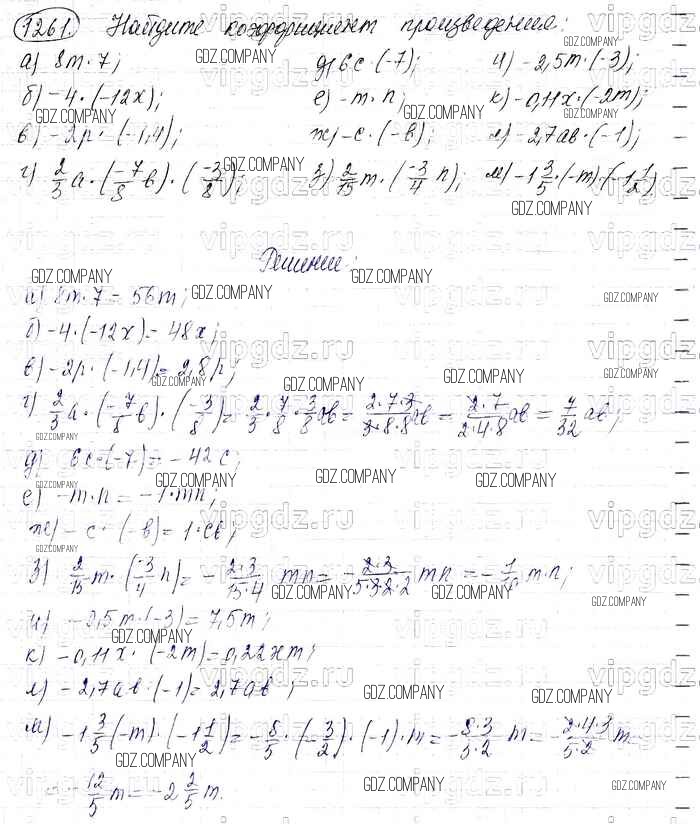 1261. Найдите коэффициент произведения:
а) 8m·7; д) 6c·(-7); и) -2,5m·(-3);
б) -4·(-12x); е) -m·n; к) -0,11x·(-2m);
в) -2p·(-1,4); ж) -c·(-b); л) -2,7ab·(-1);
г) 2/3 a·(-7/8 b)·(-3/8); з) 2/15 m·(-3/4 n); м) -1 3/5·(-m)·(-1 1/2)
Решение:
а) 8m·7 = 56m;
б) -4·(-12x) = 48x;
в) -2p·(-1,4) = 2,8p;
г) 2/3 a·(-7/8 b)·(-3/8) = 2/3·7/8·3/8 ab = 2·7·3/3·8·8 ab = 2·7/2·4·8 ab = 7/32 ab;
д) 6c·(-7) = -42c;
е) -m·n = -1·mn;
ж) -c·(-b) = 1·cb;
з) 2/15 m·(-3/4 n) = -2·3/15·4 mn = -2·3/5·3·2·2 mn = -1/10 m·n;
и) -2,5m·(-3) = 7,5m;
к) -0,11x·(-2m) = 0,22xm;
л) -2,7ab·(-1) = 2,7ab;
м) -1 3/5(-m)·(-1 1/2) = -8/5·(-3/2)·(-1)·m = -8·3/5·2 m = -2·4·3/5·2 m =
= -12/5 m = -2 2/5 m.
GDZ.COMPANY
vipgdz.ru